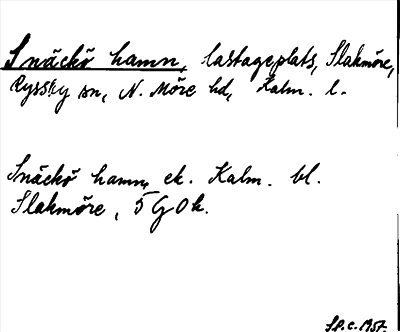 Snäckö hamn, lastageplats, Slakmöre,
Ryssby sn, N. Möre hd, Kalm. l.
Snäckö hamn, ek. Kalm. bl.
Slakmöre, 5 G 0 h.
1957.